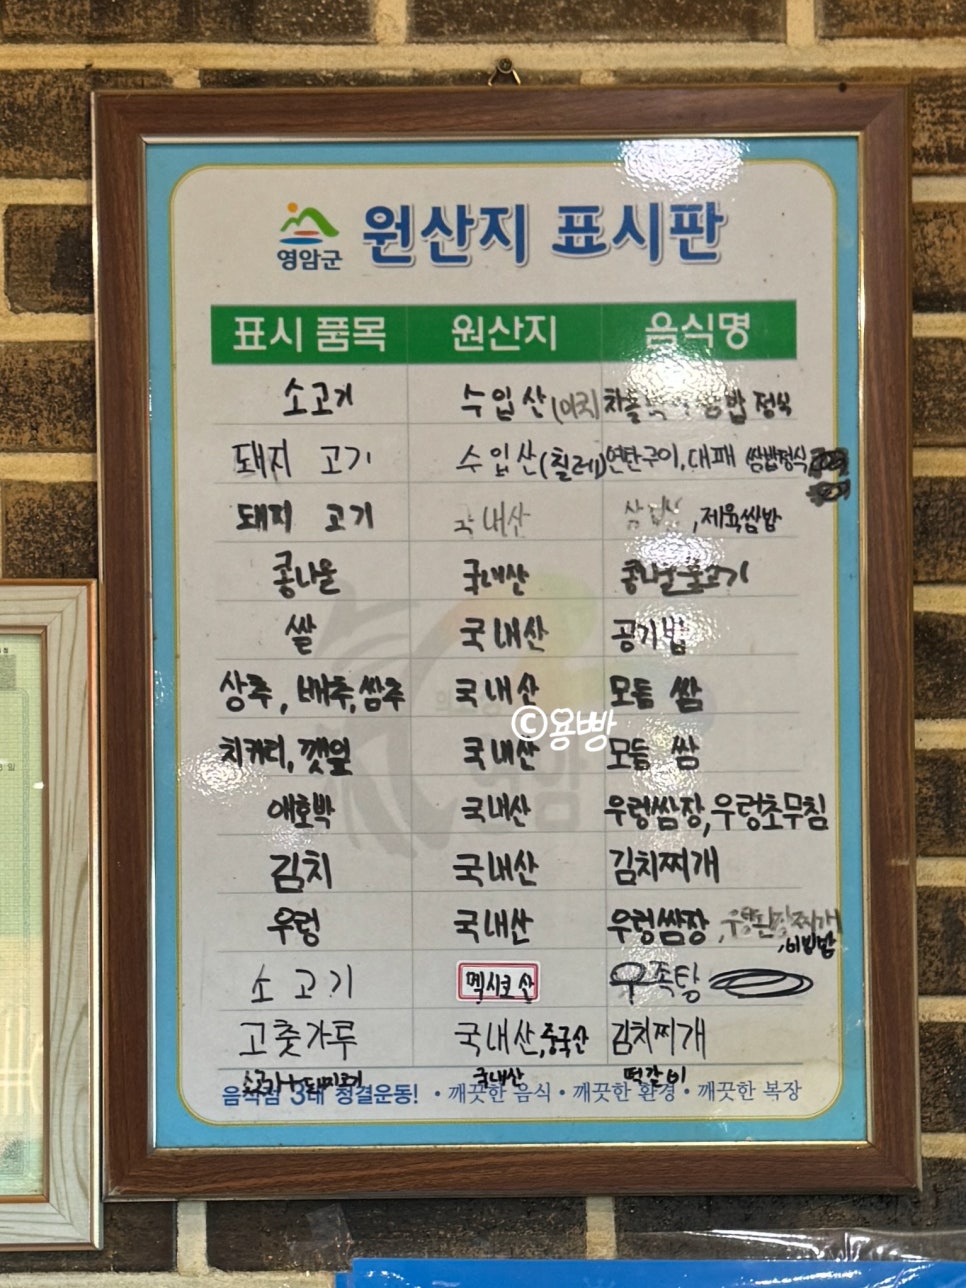 영암군 원산지 표시판
표시 품목 원산지 음식명
소고기 수입산(미국) 정식
돼지 고기 수입산(칠레) 연탄구이, 대패 쌈밥정식
돼지 고기 국내산 , 제육쌈밥
콩나물 국내산 콩나물불고기
쌀 국내산 공기밥
상추, 배추, 쌈추 국내산 모듬 쌈
©용빵
치커리, 깻잎 국내산 모듬 쌈
애호박 국내산 우렁쌈장, 우렁초무침
김치 국내산 김치찌개
우렁 국내산 우렁쌈장, 우렁된장찌개
, 비빔밥
소고기 멕시코산 우족탕
고춧가루 국내산, 중국산 김치찌개
소고기+돼지고기 국내산 떡갈비
음식점 3대 청결운동! • 깨끗한 음식 • 깨끗한 환경 • 깨끗한 복장